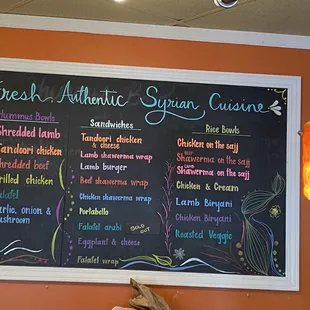 Fresh, Authentic Syrian Cuisine
Hummus Bowls
Shredded lamb
Tandoori chicken
Shredded beef
Grilled chicken
Falafel
Garlic, onion &
mushroom
Sandwiches
Tandoori chicken
& cheese
Lamb shawerma wrap
Lamb burger
Beef shawerma wrap
Chicken shawerma wrap
Portabello
Falafel arabi
SOLD
OUT
Eggplant & cheese
Falafel wrap
Rice Bowls
Chicken on the sajj
BEEF
Shawerma on the sajj
LAMB
Shawerma on the sajj
Chicken & Cream
Lamb Biryani
Chicken Biryani
Roasted Veggie